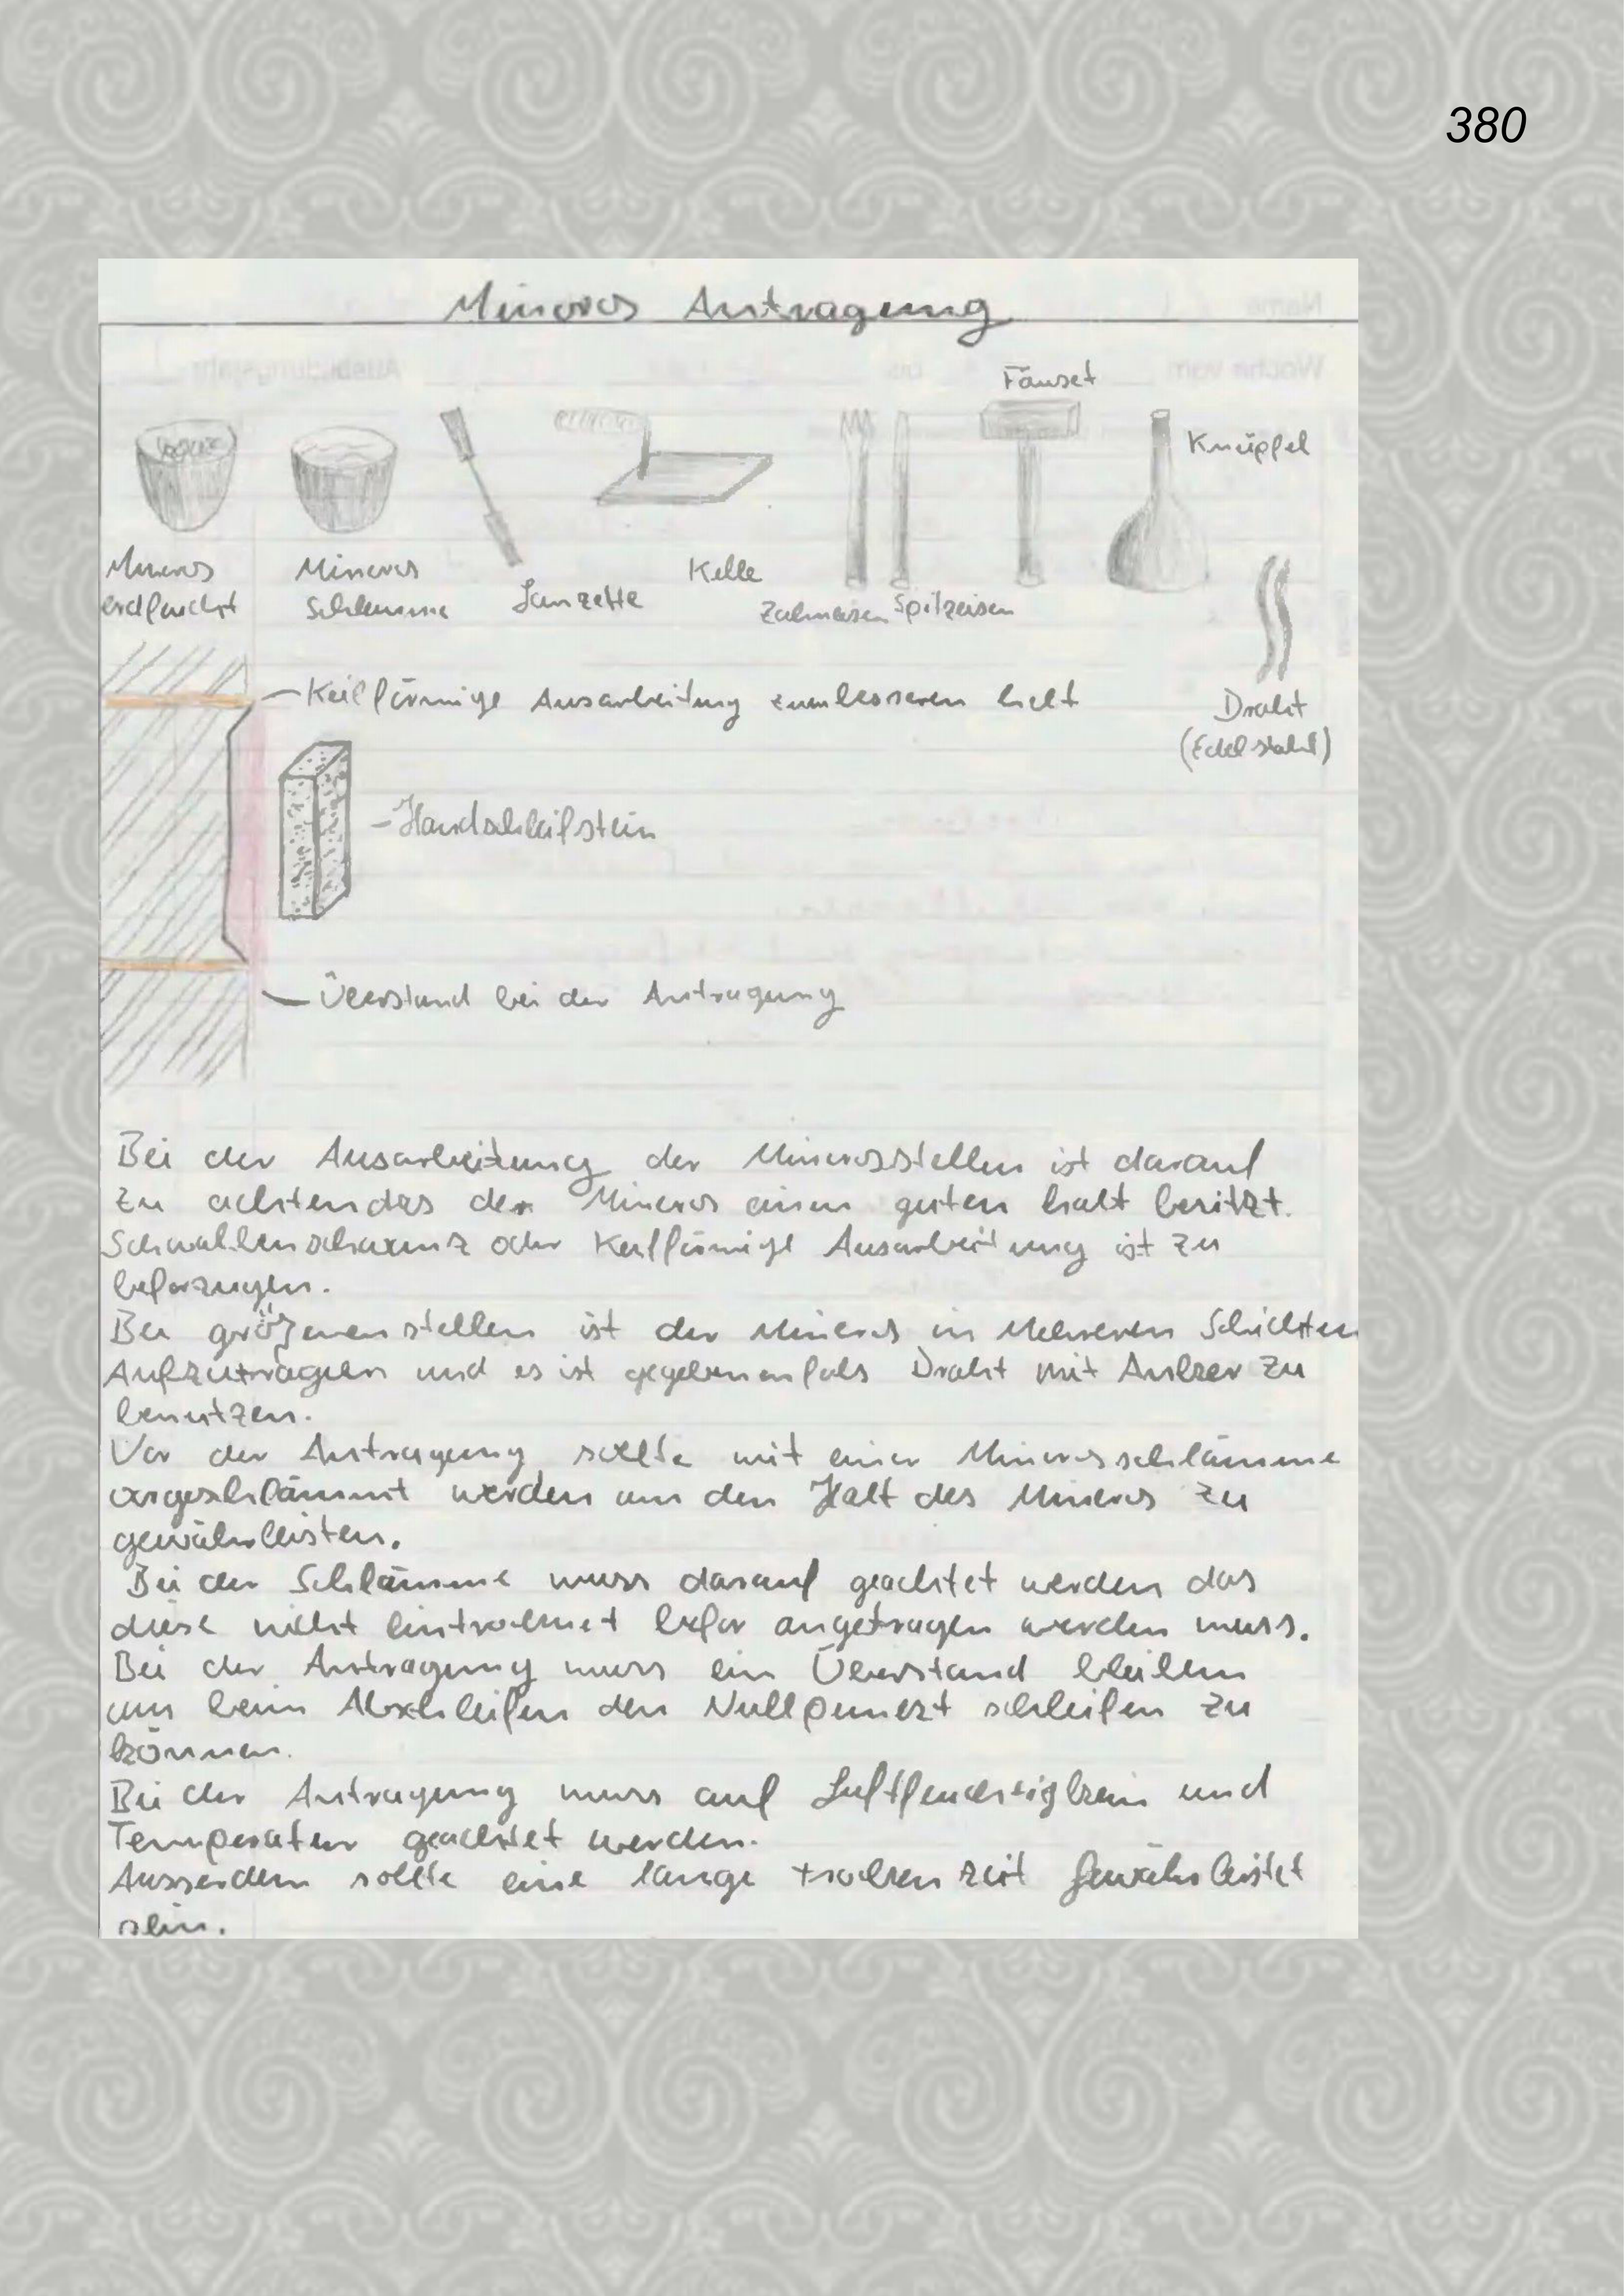 380
Mineros Antragung
Fäusel
Knüpfel
Mineros
erdfeucht
Mineros
Schlemme
Lanzette
Kelle
Zahneisen
Spitzeisen
Draht
(Edelstahl)
Keilförmige Ausarbeitung zum besseren halt
Handschleifstein
Überstand bei der Antragung
Bei der Ausarbeitung der Minerosstellen ist darauf
zu achten das der Mineros einen guten halt besitzt.
Schwalbenschwanz oder Keilförmige Ausarbeitung ist zu
beforzugen.
Bei größeren stellen ist der Mineros in Mehreren Schichten
Aufzutragen und es ist gegebenenfals Draht mit Anker zu
benutzen.
Vor der Antragung sollte mit einer Minerosschlämme
vorgeschlämmt werden um den Halt des Mineros zu
gewährleisten.
Bei der Schlämme muss darauf geachtet werden das
diese nicht eintrocknet befor angetragen werden muss.
Bei der Antragung muss ein Überstand bleiben
um beim Abschleifen den Nullpunkt schleifen zu
können.
Bei der Antragung muss auf und
Temperatur geachtet werden.
Ausserdem sollte eine lange trocken zeit Gewährleistet
sein.